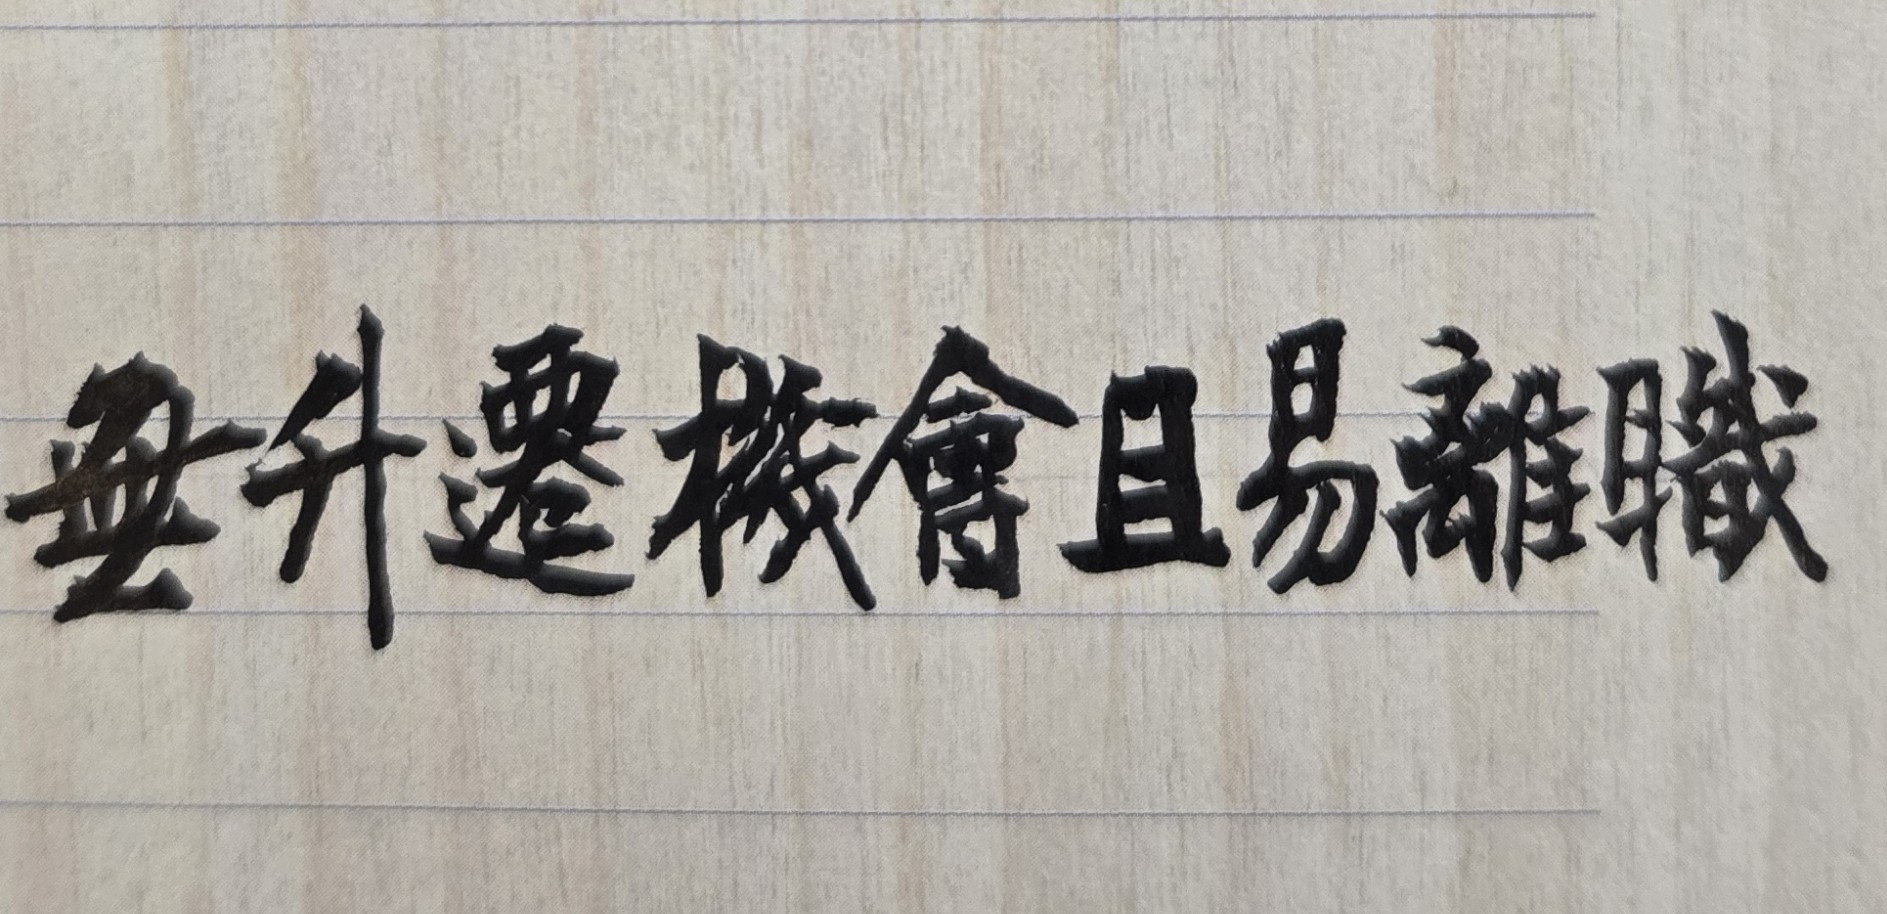 無升遷機會且易離職